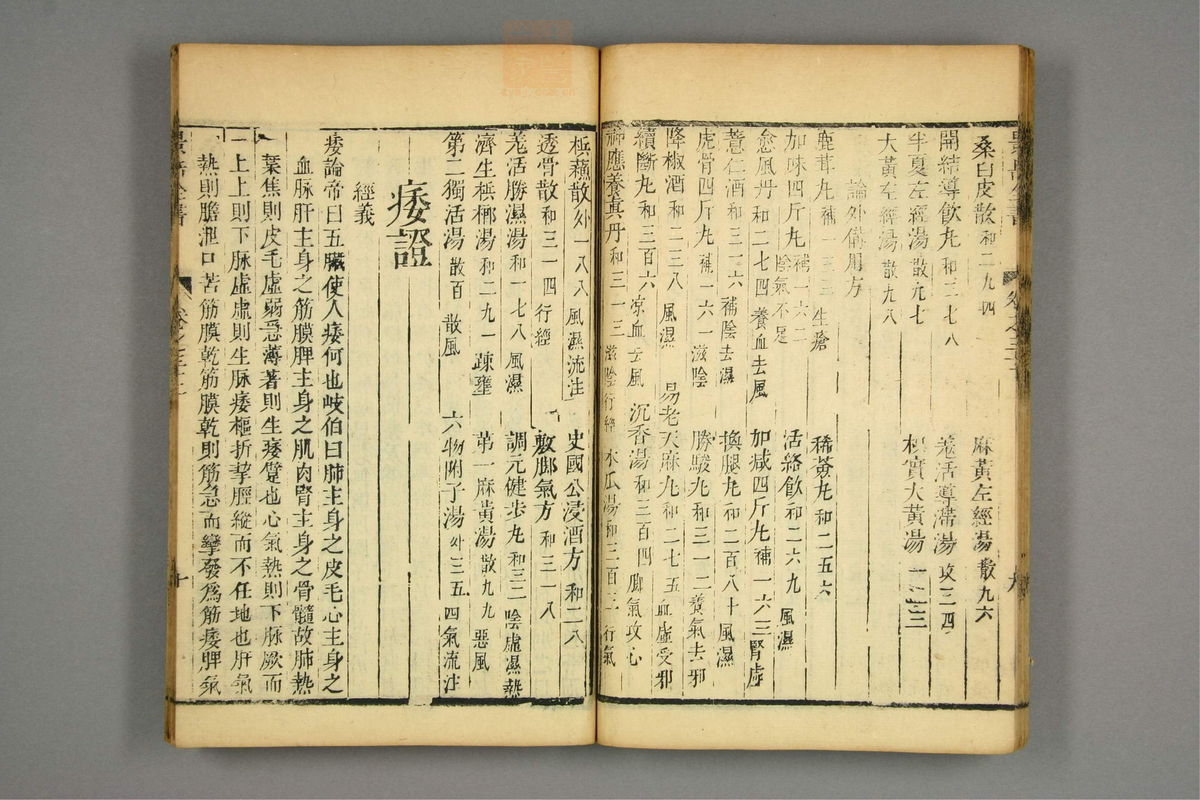 桑白皮散和二九四 麻黃左經湯散九六
開結導飲丸和三七八 羌活導滯湯攻三四
半夏左經湯散九七 枳實大黃湯
大黃左經湯散九八
論外備用方
鹿茸丸補一三三 生瘡 稀薟丸和二五六
加味四斤丸補一六二陰氣不足 活絡飲和二六九 風濕
愈風丹和二七四養血去風 加减四斤丸補一六三腎虛
薏仁酒和三一六 補陰去濕 換腿丸和二百八十風濕
虎骨四斤丸補一六一 滋陰 勝駿丸和三一二養氣去邪
降椒酒和二三八 風濕 易老天麻丸和二七五血虛受邪
續斷丸和三百六 凉血去風 沉香湯和三百四 脚氣攻心
神應養真丹和三一三滋陰行經 木瓜湯和三百三行氣
檳蘇散外一八八 風濕流注 史國公浸酒方 和二八
透骨散和三一四行經 敷脚氣方和三一八
羌活勝濕湯和一七八風濕 調元健步丸和三二陰虛濕熱
濟生梹榔湯和二九一踈壅 第一麻黃湯散九九 惡風
第二獨活湯散百 散風 六物附子湯外三五 四氣流注
痿證
經義
痿論帝曰五臟使人痿何也岐伯曰肺主身之皮毛心主身之
血脉肝主身之筋膜脾主身之肌肉腎主身之骨髓故肺熱
葉焦則皮毛虛弱急薄著則生痿躄也心氣熱則下脉厥而
上上則下脉虛虛則生脉痿樞折挈脛縱而不任地也肝氣
熱則膽泄口苦筋膜乾筋膜乾則筋急而攣發爲筋痿脾氣
景岳全書 卷之三十二 十